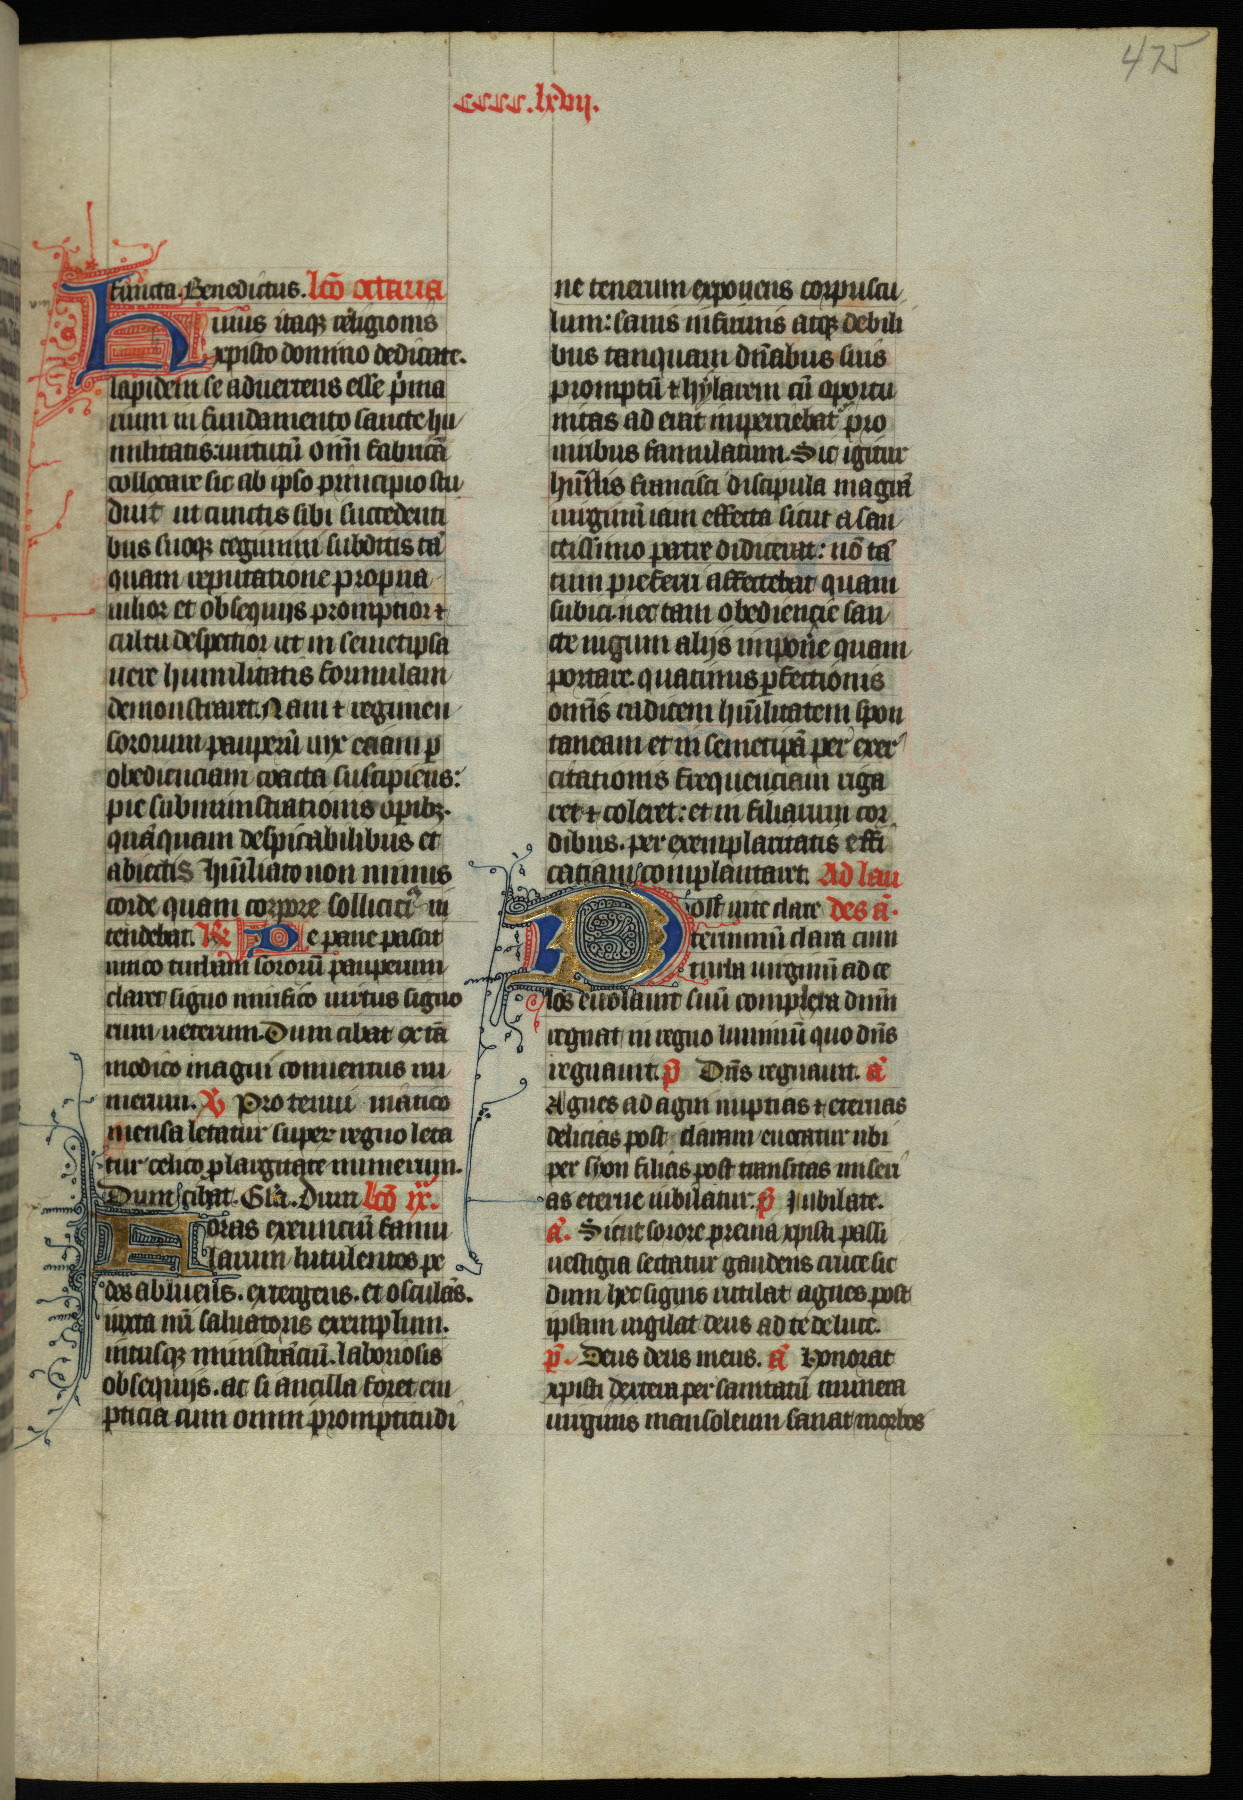 475
cccc.lxvij.
functa. Benedictus. lcō octaua
Huius itaqꝫ religionis
xpisto domino dedicate.
lapidem se aduertens esse p̄ma
rium in fundamento sancte hu
militatis: uirtutū om̄i fabricā
collocare sic ab ipso principio stu
duit ut cunctis sibi succedenti
bus suoqꝫ regimini subditis tā
quam reputatione propria
uilior et obsequijs promptior ⁊
cultu despectior ut in semetipsa
uere humilitatis formulam
demonstraret. Nam ⁊ regimen
sororum pauperū uix etiam ꝑ
obedienciam coacta suscipiens:
pie subministrationis oꝑibꝫ.
quāquam despicabilibus et
abiectis hūiliato non minus
corde quam corpore sollicita in
tendebat. R̄ De pane pascit
unico turbam sororū pauperum
claret signo mirifico uirtus signo
rum ueterum. Dum cibat ex tā
modico magni conuentus nu
merum. V̄ Pro terni mātico
mensa letatur super regno leta
tur celico ꝑ largitate munerum.
Dum cibat. Glā. Dum lcō ix.
Foras exeunciū famu
larum lutulentos pe
des abluens. extergens. et osculās.
iuxta nr̄i saluatoris exemplum.
intusqꝫ ministranciū. laboriosis
obsequijs. ac si ancilla foret em
pticia cum omni promptitudi
ne tenerum exponens corpuscu
lum: sanis infirmis atqꝫ debili
bus tanquam dn̄abus suis
promptū ⁊ hylarem cū oportu
nitas ad erat impertiebat pro
uiribus famulatum. Sic igitur
hūilis francisci discipula magr̄a
uirginū iam effecta sicut a san
ctissimo patre didicerat: nō tā
tum preferri affectebat quam
subici. nec tam obediencie san
cte iugum alijs impoňe quam
portare. quatinus ꝑfectionis
om̄is radicem hūilitatem spon
taneam et in semetipā per exer
citationis frequenciam riga
ret ⁊ coleret: et in filiarum cor
dibus. per exemplaritatis effi
catiam complantaret. Ad lau
Post uite clare des ā.
terminū clara cum
turba uirginū ad ce
los euolauit suū completa dmin
regnat in regno luminū quo dn̄s
regnauit. p̄ Dn̄s regnauit. ā
Agnes ad agni nuptias ⁊ eternas
delicias post claram euocatur ubi
per syon filias post transitas miseri
as eterne iubilatur. p̄ Iubilate.
ā. Sicut sorore preuia xpisti passi
uestigia sectatur gaudens cruce sic
dum hec signis rutilat agnes post
ipsam uigilat deus ad te de luce.
p̄. Deus deus meus. ā Honorat
xpisti dextera per sanitatū munera
uirginis mausoleum sanat morbos